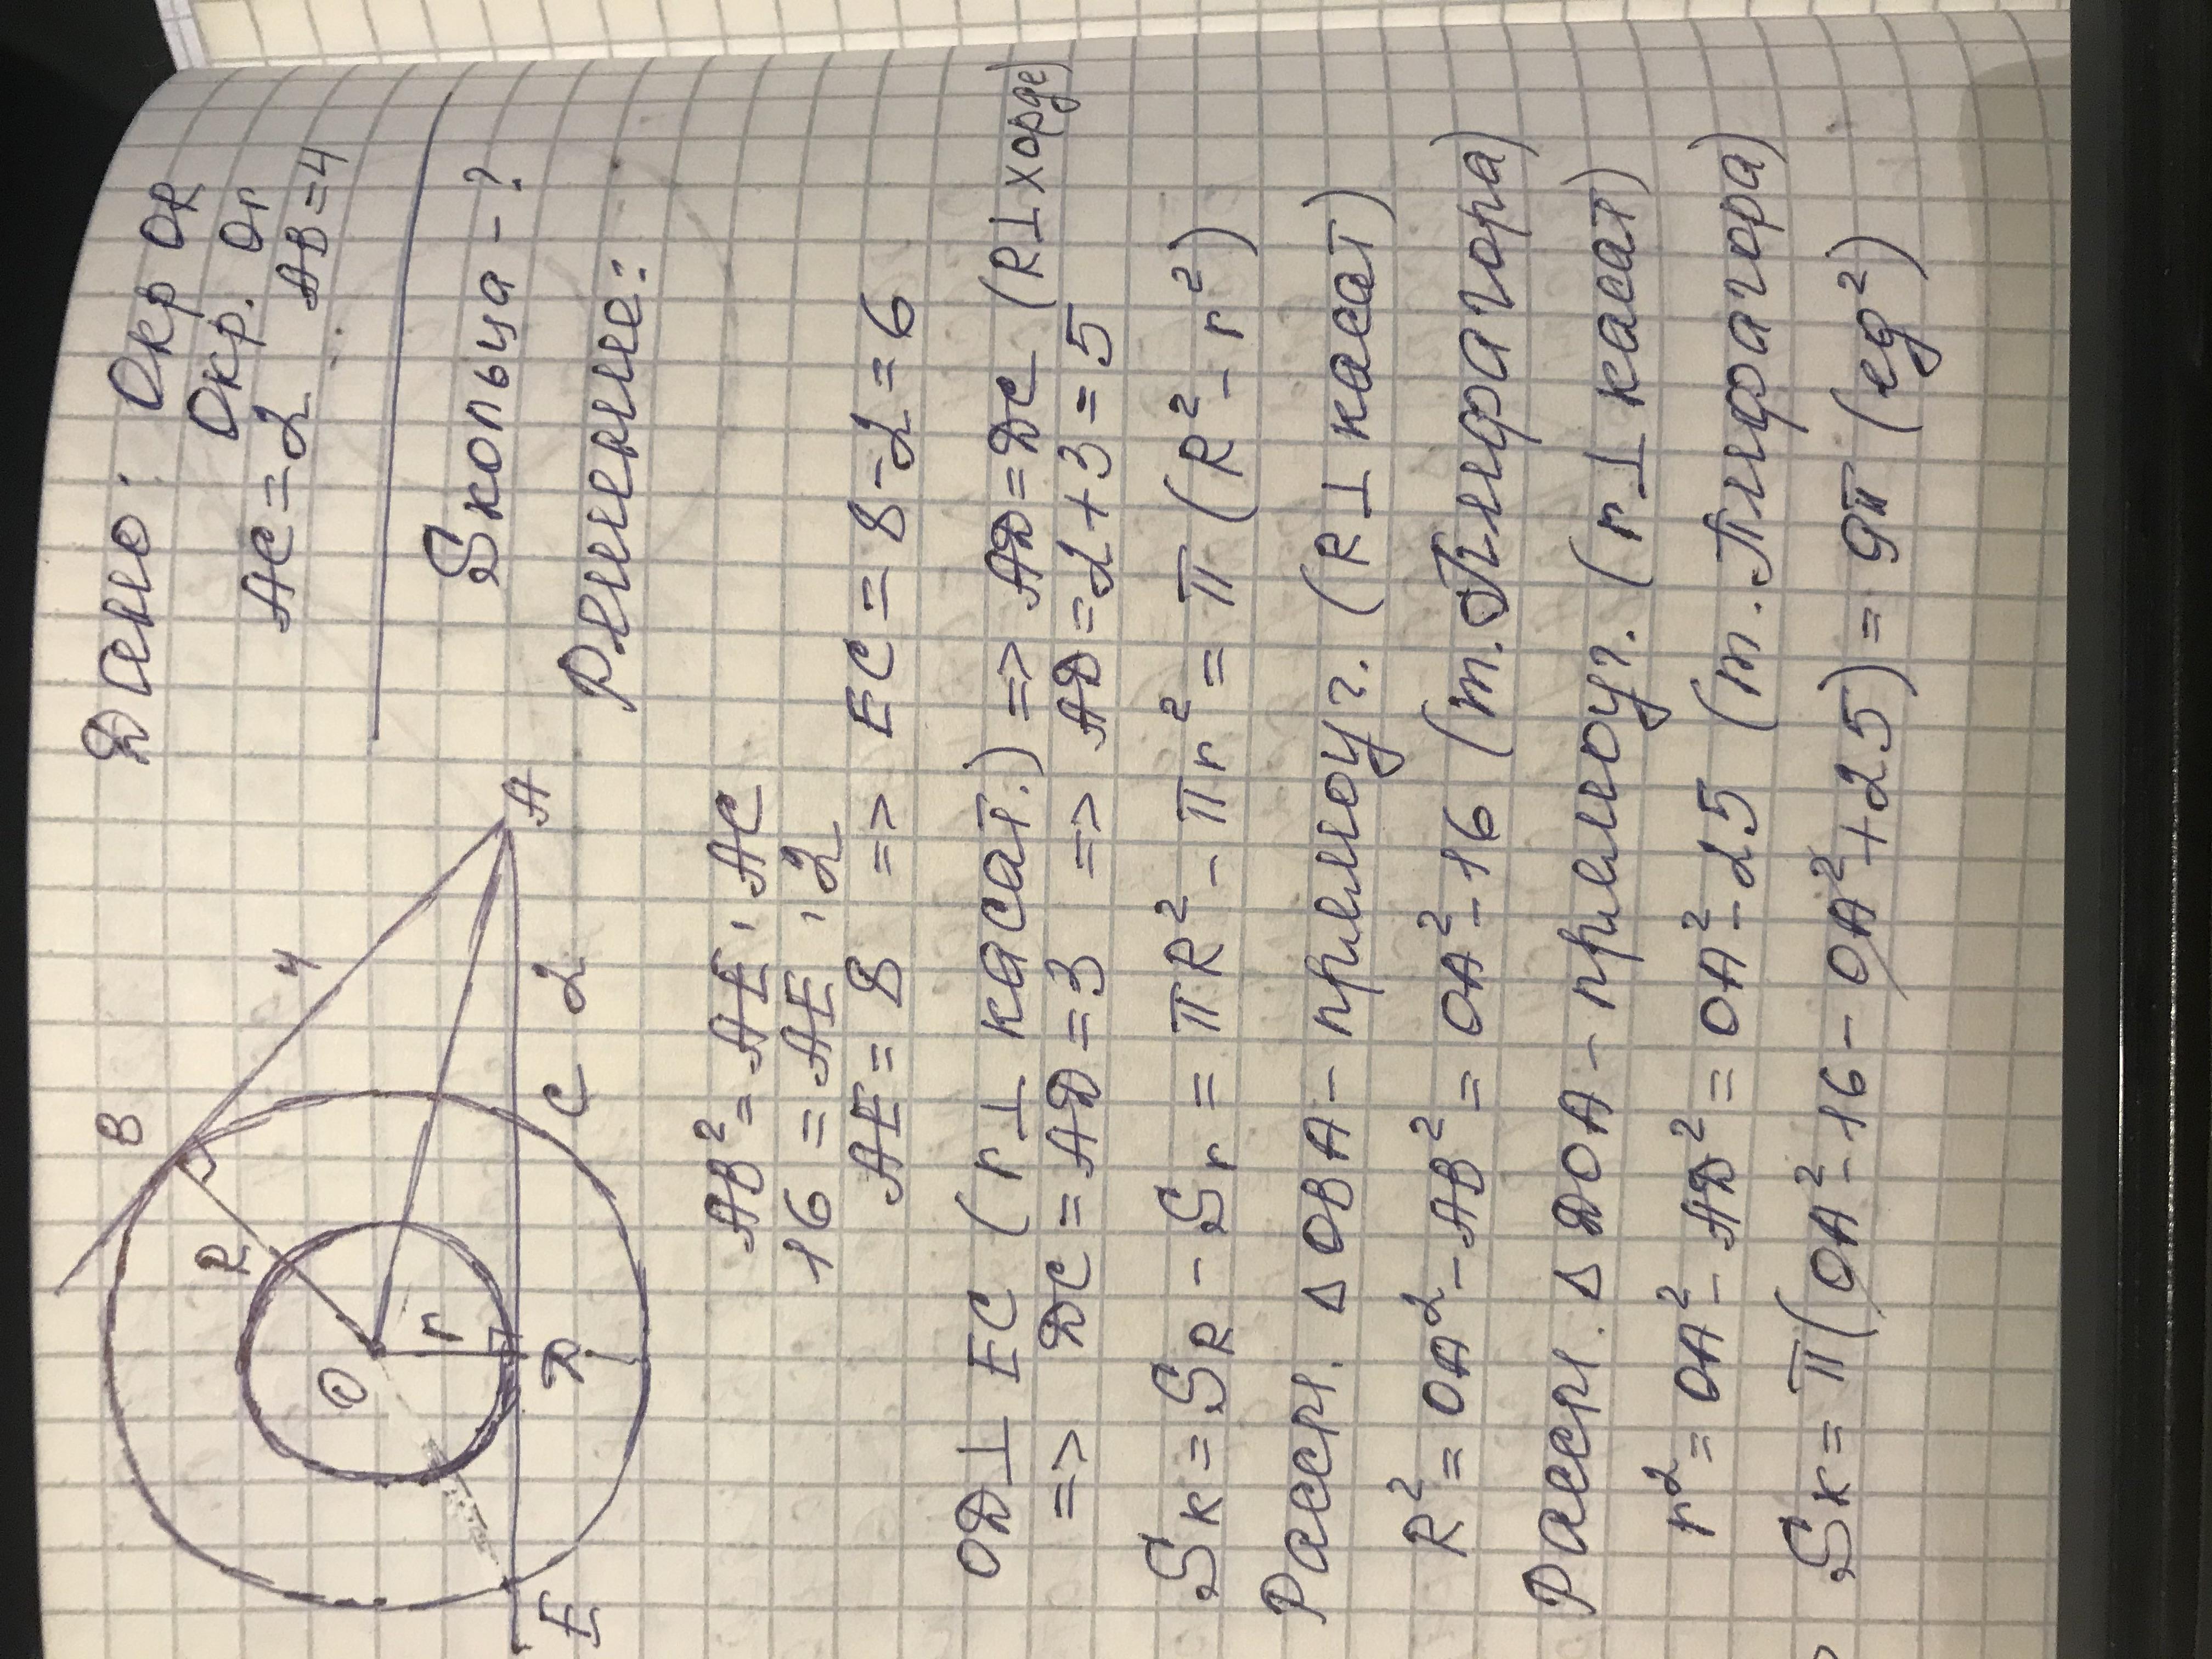 Дано: Окр OR
Окр. Or
AC = 2 AB = 4
Sкольца - ?
Решение:
B
4
A
R
O
r
2
C
Д
E
AB² = AE · AC
16 = AE · 2
AE = 8 => EC = 8 - 2 = 6
ОД ⊥ EC (r ⊥ касат.) => AД = ДC (R ⊥ хорде)
=> ДC = AД = 3 => AД = 2 + 3 = 5
Sк = SR - Sr = πR² - πr² = π (R² - r²)
Рассм. Δ OBA - прямоуг. (R ⊥ касат)
R² = OA² - AB² = OA² - 16 (т. Пифагора)
Рассм. Δ ДOA - прямоуг. (r ⊥ касат)
r² = OA² - AД² = OA² - 25 (т. Пифагора)
Sк = π (OA² - 16 - OA² + 25) = 9π (ед²)